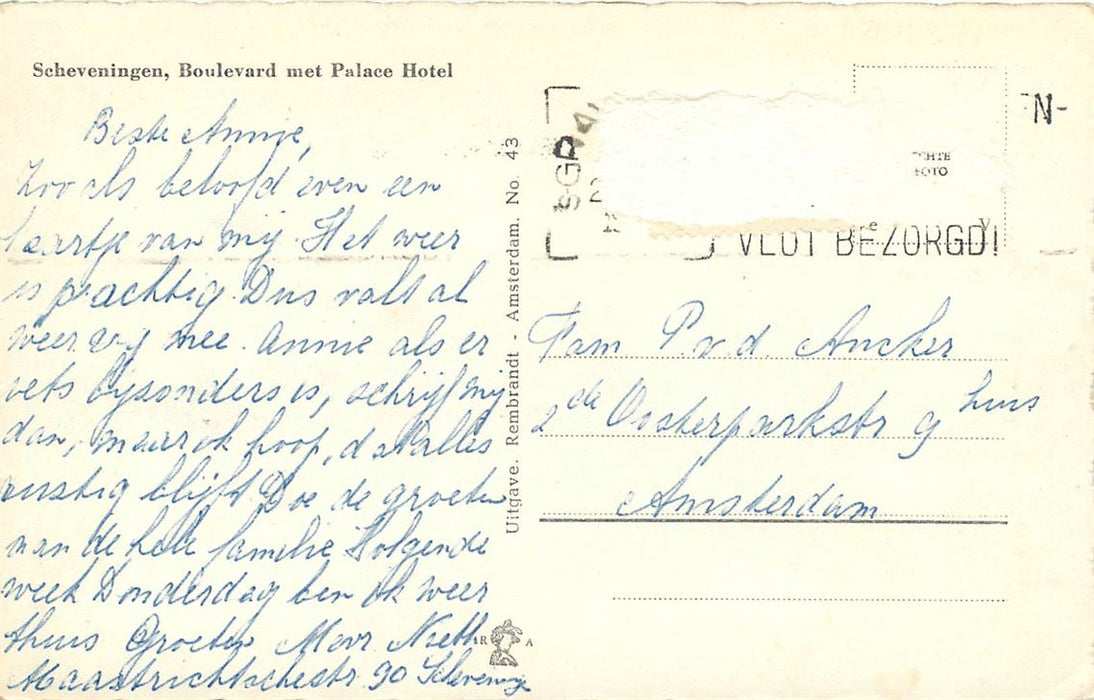 Scheveningen, Boulevard met Palace Hotel
Beste Annie,
Zooals beloofd even een
kaartje van mij. Het weer
is prachtig. Dus valt al
weer mee. Annie als er
iets bijsonders is, schrijf mij
dan, maar ik hoop, dat alles
rustig blijft. Doe de groeten
aan de hele familie. Volgende
week Donderdag ben ik weer
thuis Groeten Mevr.
Maastrichtschestr. 90 Schevening
Uitgave. Rembrandt - Amsterdam. No. 43
R A
SGR
N-
CHTE
FOTO
VLOT BEZORGD!
Fam P. v. d. Ancker
2de Oosterparkstr 9 huis
Amsterdam